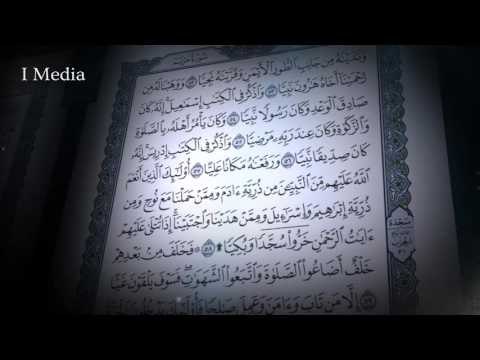 I Media
وَنَٰدَيْنَٰهُ مِن جَانِبِ ٱلطُّورِ ٱلْأَيْمَنِ وَقَرَّبْنَٰهُ نَجِيًّا ۝٥٢ وَوَهَبْنَا لَهُۥ مِن
رَّحْمَتِنَآ أَخَاهُ هَٰرُونَ نَبِيًّا ۝٥٣ وَٱذْكُرْ فِى ٱلْكِتَٰبِ إِسْمَٰعِيلَ إِنَّهُۥ كَانَ
صَادِقَ ٱلْوَعْدِ وَكَانَ رَسُولًا نَّبِيًّا ۝٥٤ وَكَانَ يَأْمُرُ أَهْلَهُۥ بِٱلصَّلَوٰةِ
وَٱلزَّكَوٰةِ وَكَانَ عِندَ رَبِّهِۦ مَرْضِيًّا ۝٥٥ وَٱذْكُرْ فِى ٱلْكِتَٰبِ إِدْرِيسَ إِنَّهُۥ
كَانَ صِدِّيقًا نَّبِيًّا ۝٥٦ وَرَفَعْنَٰهُ مَكَانًا عَلِيًّا ۝٥٧ أُو۟لَٰٓئِكَ ٱلَّذِينَ أَنْعَمَ
ٱللَّهُ عَلَيْهِم مِّنَ ٱلنَّبِيِّۦنَ مِن ذُرِّيَّةِ ءَادَمَ وَمِمَّنْ حَمَلْنَا مَعَ نُوحٍ وَمِن
ذُرِّيَّةِ إِبْرَٰهِيمَ وَإِسْرَٰٓءِيلَ وَمِمَّنْ هَدَيْنَا وَٱجْتَبَيْنَآ إِذَا تُتْلَىٰ عَلَيْهِمْ
ءَايَٰتُ ٱلرَّحْمَٰنِ خَرُّوا۟ سُجَّدًا وَبُكِيًّا ۩ ۝٥٨ فَخَلَفَ مِنۢ بَعْدِهِمْ
خَلْفٌ أَضَاعُوا۟ ٱلصَّلَوٰةَ وَٱتَّبَعُوا۟ ٱلشَّهَوَٰتِ فَسَوْفَ يَلْقَوْنَ غَيًّا
۝٥٩ إِلَّا مَن تَابَ وَءَامَنَ وَعَمِلَ صَٰلِحًا فَأُو۟لَٰٓئِكَ يَدْخُلُونَ
سجدة